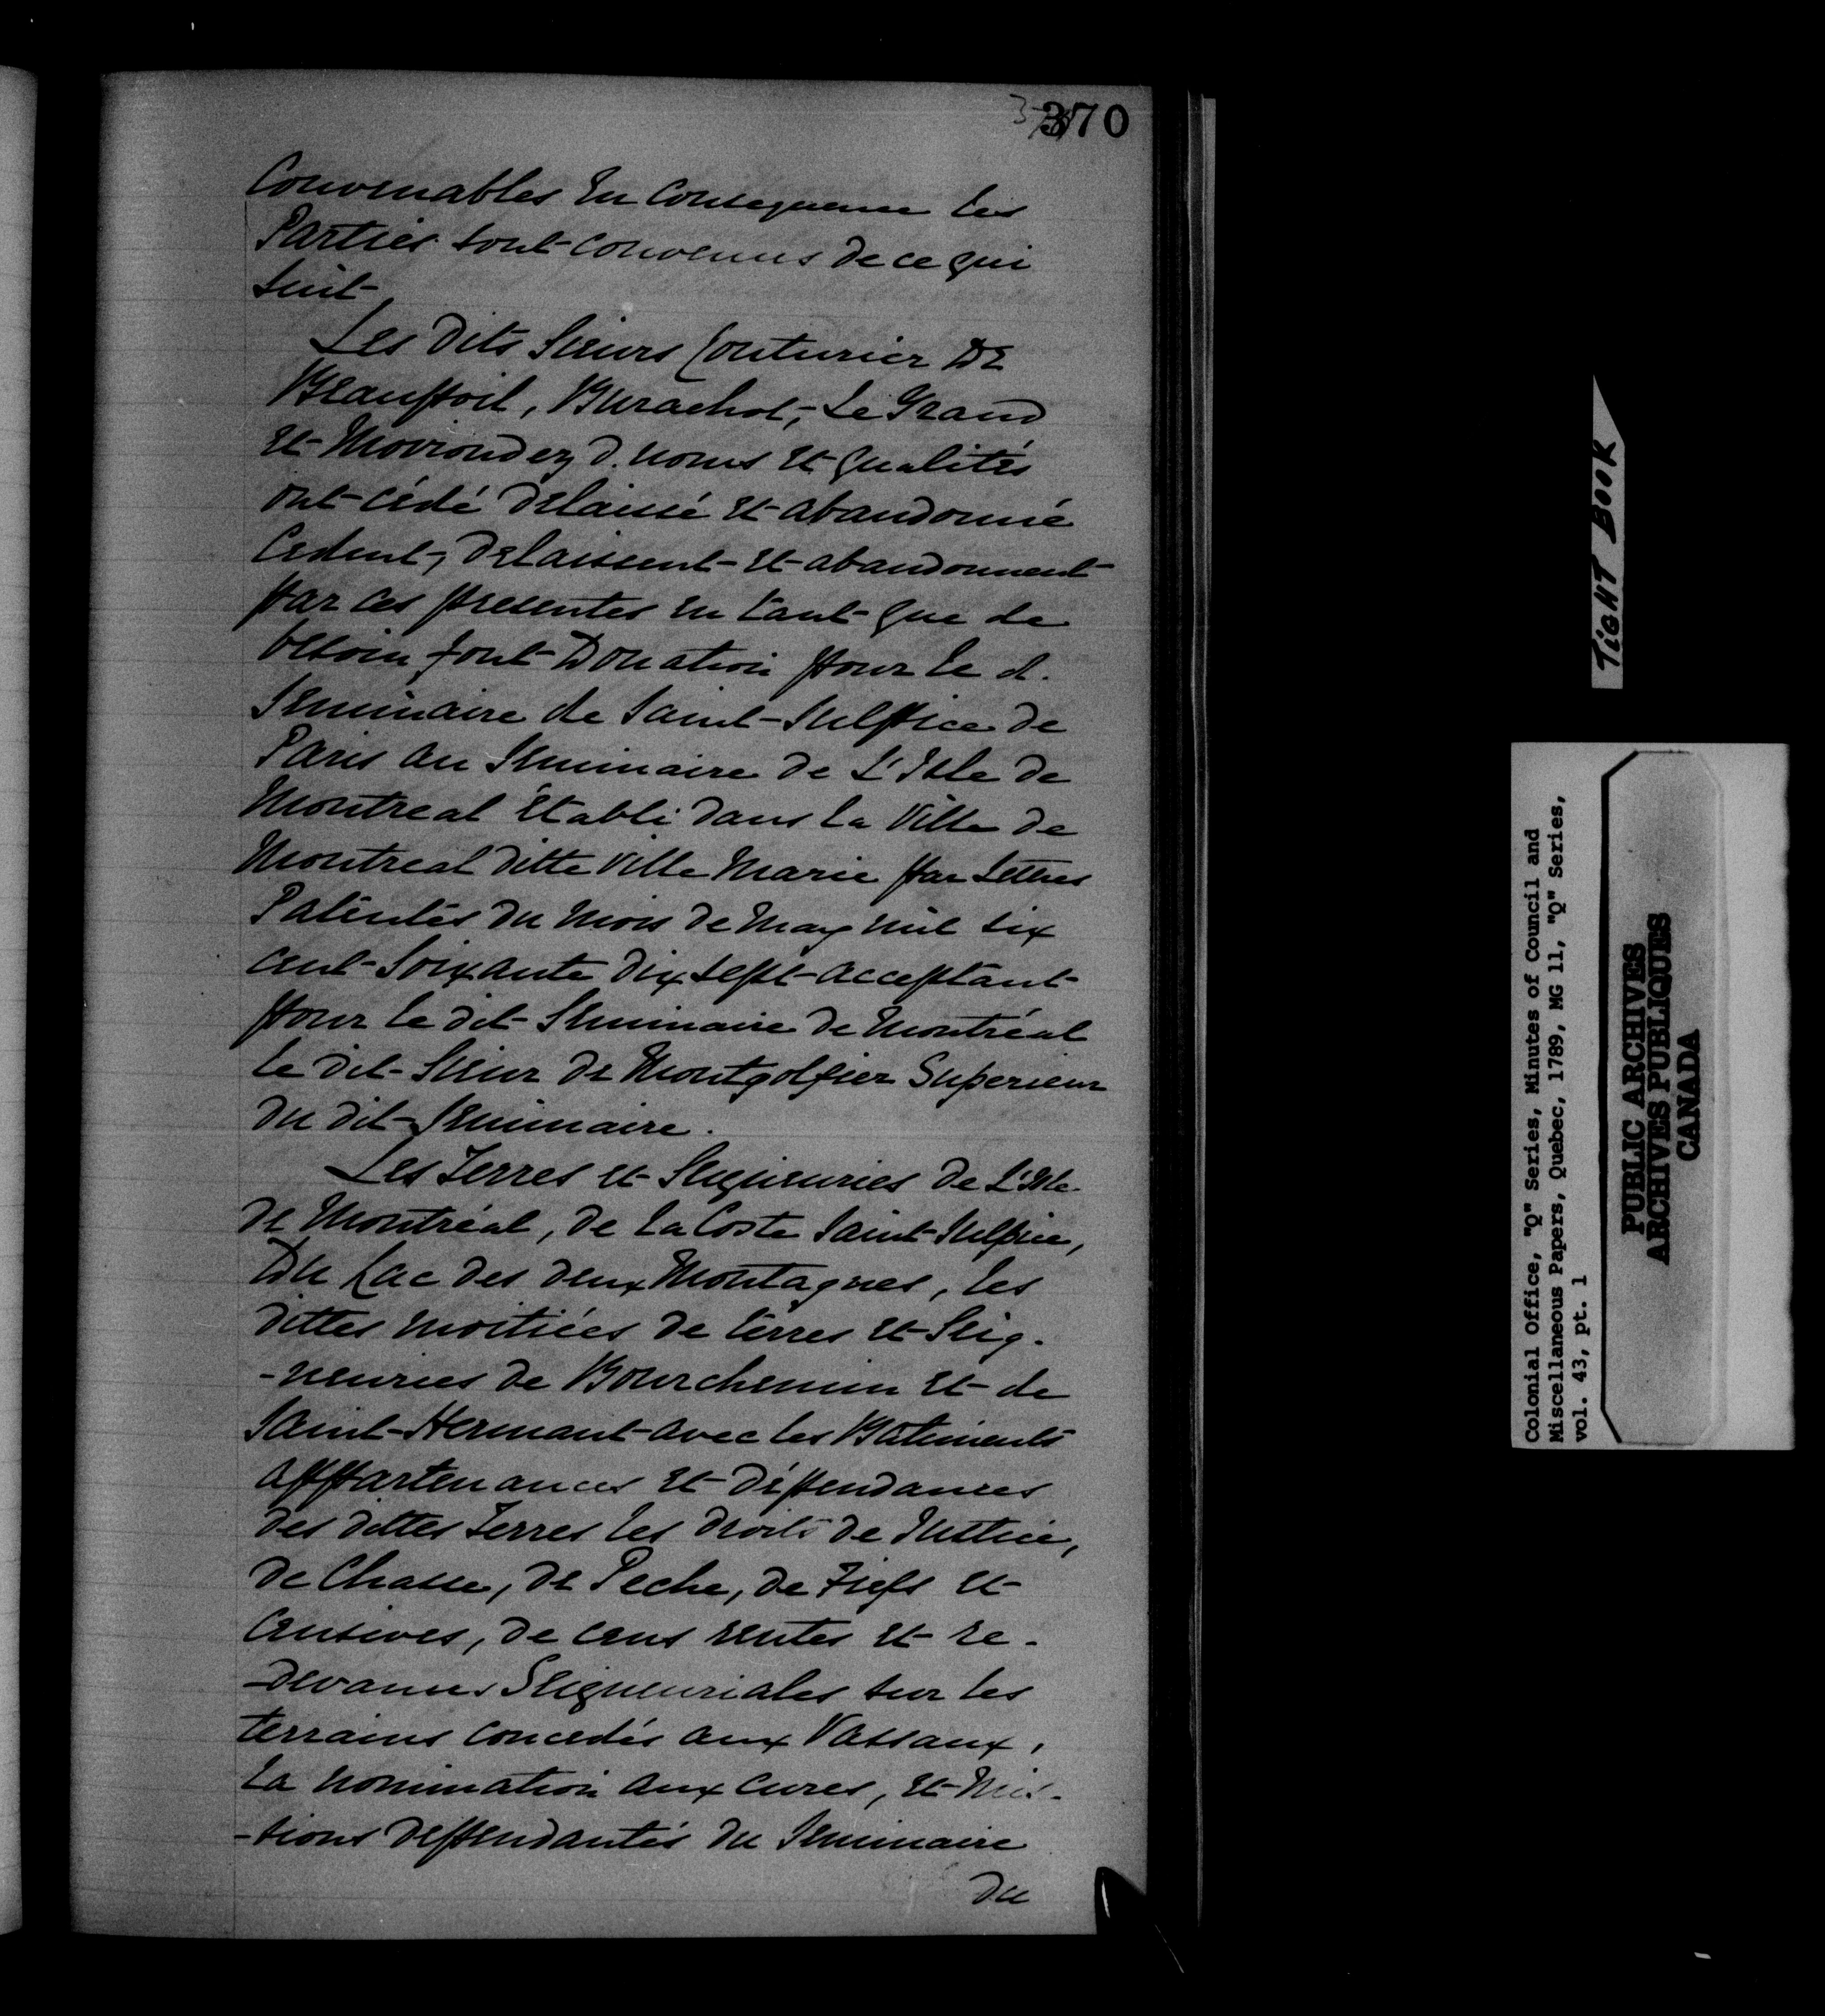 370
Convenables En Consequence les
Parties sont convenus de ce qui
suit
Les dits Sieurs Couturier De
Beaupoil, Burachot, Le Grand
et d. noms et qualités
ont cédé delaissé et abandonné
Cedent, delaissent et abandonnent
par ces presentes en tant que de
besoin font Donation pour le d.
Seminaire de Saint-Sulpice de
Paris au Seminaire de L'Isle de
Montreal Etabli dans la Ville de
Montreal ditte Ville Marie par Lettres
Patentes du mois de may mil six
cent Soixante dix sept acceptant
pour le dit Seminaire de Montréal
le dit Sieur de Montgolfier Superieur
du dit Seminaire.
Les Terres et Seigneuries de L'Isle
de Montréal, de la Coste Saint-Sulpice,
Du Lac des deux Montagnes, les
dittes moitiées de terres et Seig-
-neuries de Bourchemin et de
Saint-Hermant avec les Bâtiments
appartenances et dépendances
des dittes Terres les droits de Justice,
de Chasse, de Peche, de Fiefs et
Censives, de cens rentes et re-
-devances Seigneuriales sur les
terrains concedés aux Vassaux,
la nomination aux cures, et Mis-
-sions deppendantes du Seminaire
du
TIGHT BOOK
Colonial Office, "Q" Series, Minutes of Council and
Miscellaneous Papers, Quebec, 1789, MG 11, "Q" Series,
vol. 43, pt. 1
PUBLIC ARCHIVES
ARCHIVES PUBLIQUES
CANADA